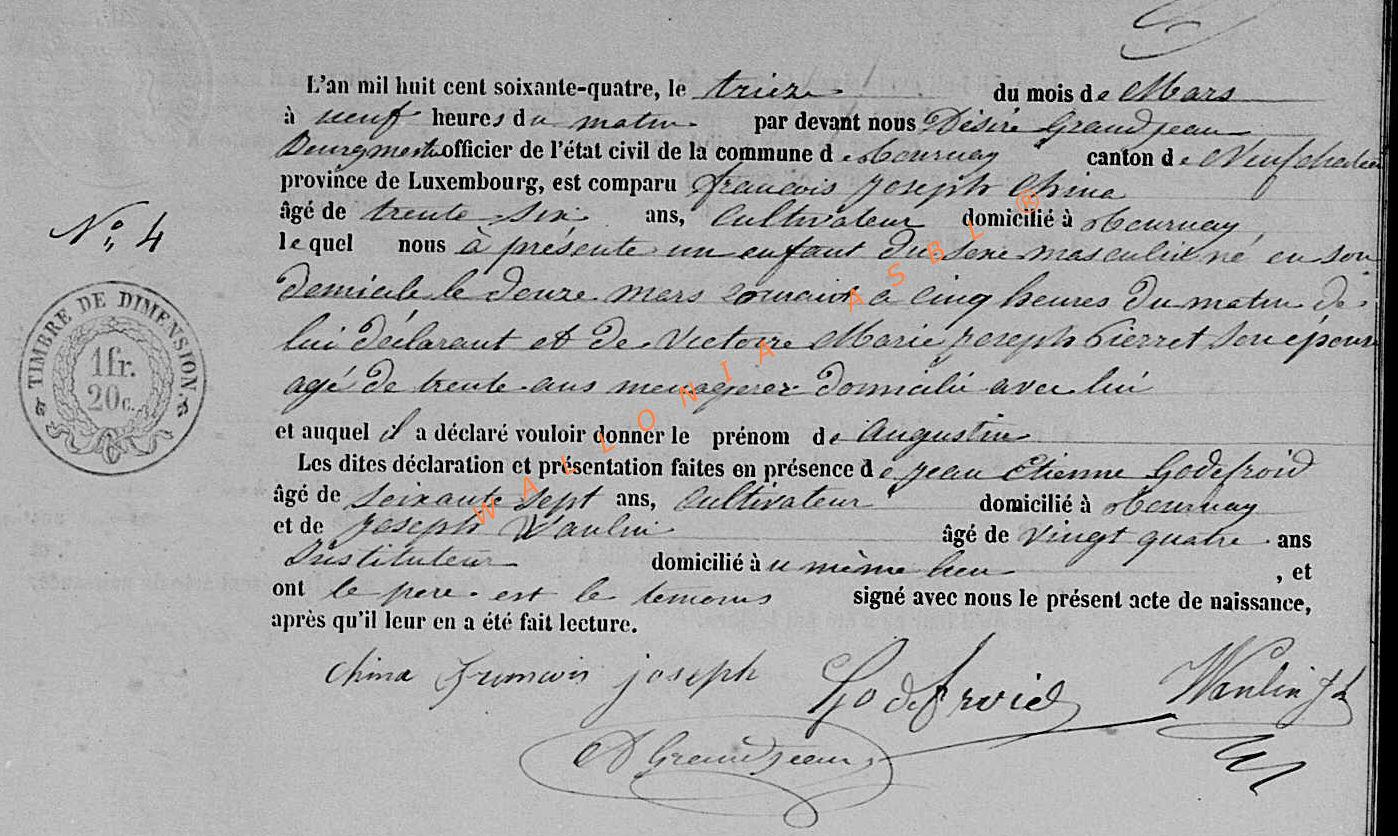 L'an mil huit cent soixante-quatre, le trieze du mois de Mars
à neuf heures du matin par devant nous Désiré Grandjean
Bourgmestre officier de l'état civil de la commune de Tournay canton de Neufchateau
province de Luxembourg, est comparu françois Joseph China
âgé de trente six ans, Cultivateur domicilié à Tournay,
N° 4
lequel nous à présenté un enfant du sexe masculin né en son
domicile le douze mars courant a cinq heures du matin de
lui déclarant et de Victoire Marie Joseph Pierret son épouse
agé de trente ans menagerer domicilié avec lui
et auquel il a déclaré vouloir donner le prénom de Augustin
Les dites déclaration et présentation faites en présence de Jean Etienne Godefroid
âgé de soixante sept ans, Cultivateur domicilié à Tournay
et de Joseph Wanlin âgé de vingt quatre ans
Instituteur domicilié au même lieu, et
ont le pere est le temoins signé avec nous le présent acte de naissance,
après qu'il leur en a été fait lecture.
China françois joseph Godefroid Wanlin Jh
D Grandjean
TIMBRE DE DIMENSION.
1fr.
20c.
WALLONIA ASBL ®